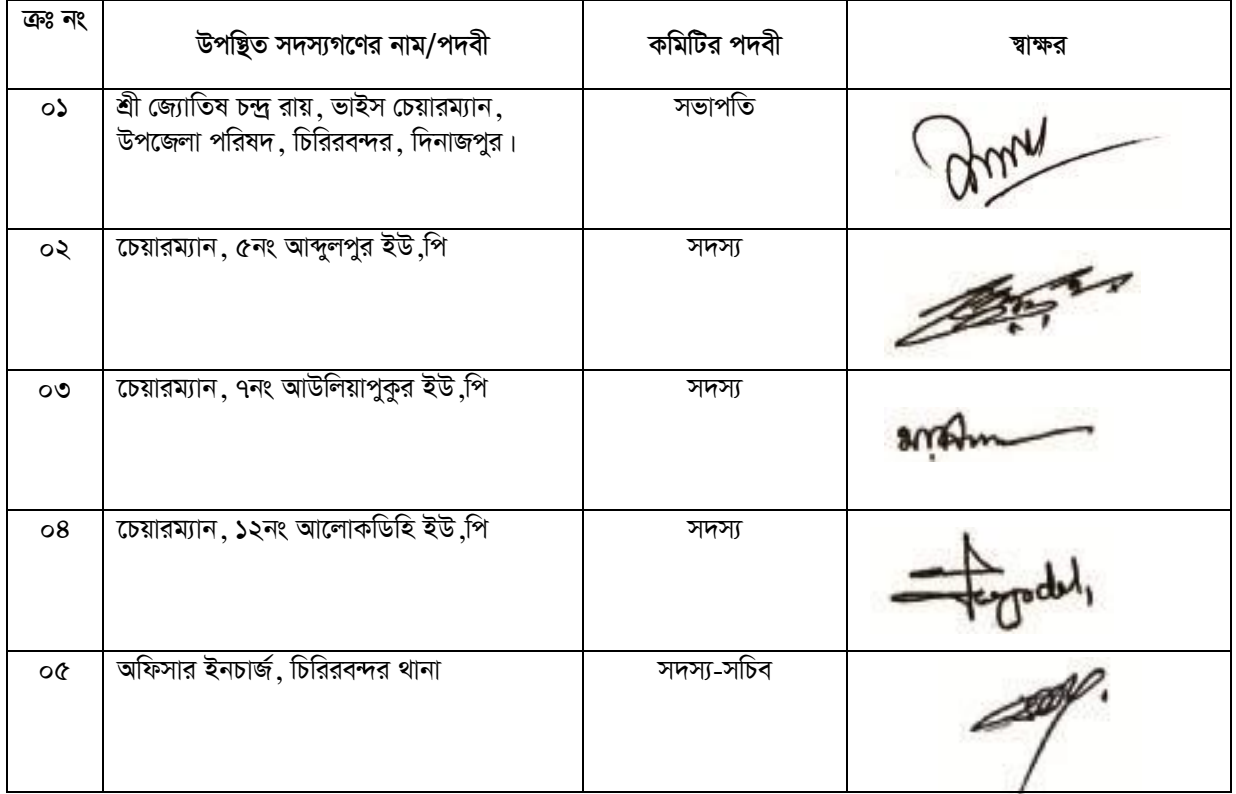 ক্রঃ নং উপস্থিত সদস্যগণের নাম/পদবী কমিটির পদবী স্বাক্ষর
০১ শ্রী জ্যোতিষ চন্দ্র রায়, ভাইস চেয়ারম্যান, সভাপতি
উপজেলা পরিষদ, চিরিরবন্দর, দিনাজপুর।
০২ চেয়ারম্যান, ৫নং আব্দুলপুর ইউ,পি সদস্য
০৩ চেয়ারম্যান, ৭নং আউলিয়াপুকুর ইউ,পি সদস্য
০৪ চেয়ারম্যান, ১২নং আলোকডিহি ইউ,পি সদস্য
০৫ অফিসার ইনচার্জ, চিরিরবন্দর থানা সদস্য-সচিব